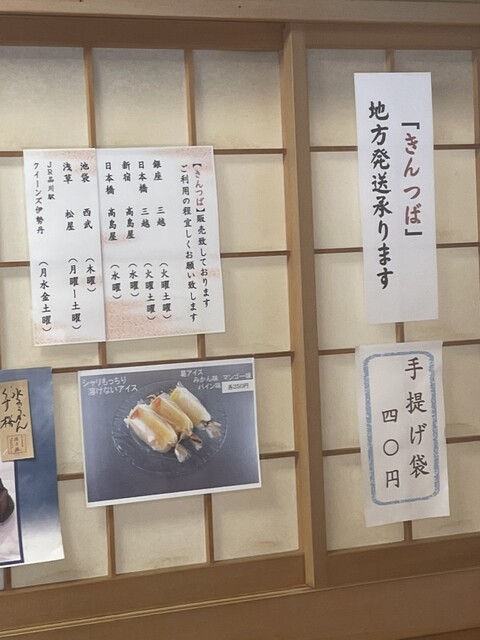 『きんつば』
地方発送承ります
手提げ袋
四〇円
【きんつば】販売致しております
ご利用の程宜しくお願い致します
銀座 三越 (火曜土曜)
日本橋 三越 (火曜土曜)
新宿 高島屋 (水曜)
日本橋 高島屋 (水曜)
池袋 西武 (木曜)
浅草 松屋 (月曜ー土曜)
JR品川駅
クイーンズ伊勢丹 (月水金土曜)
シャリもっちり
溶けないアイス
葛アイス
みかん味 マンゴー味
パイン味 各350円
水ようかん